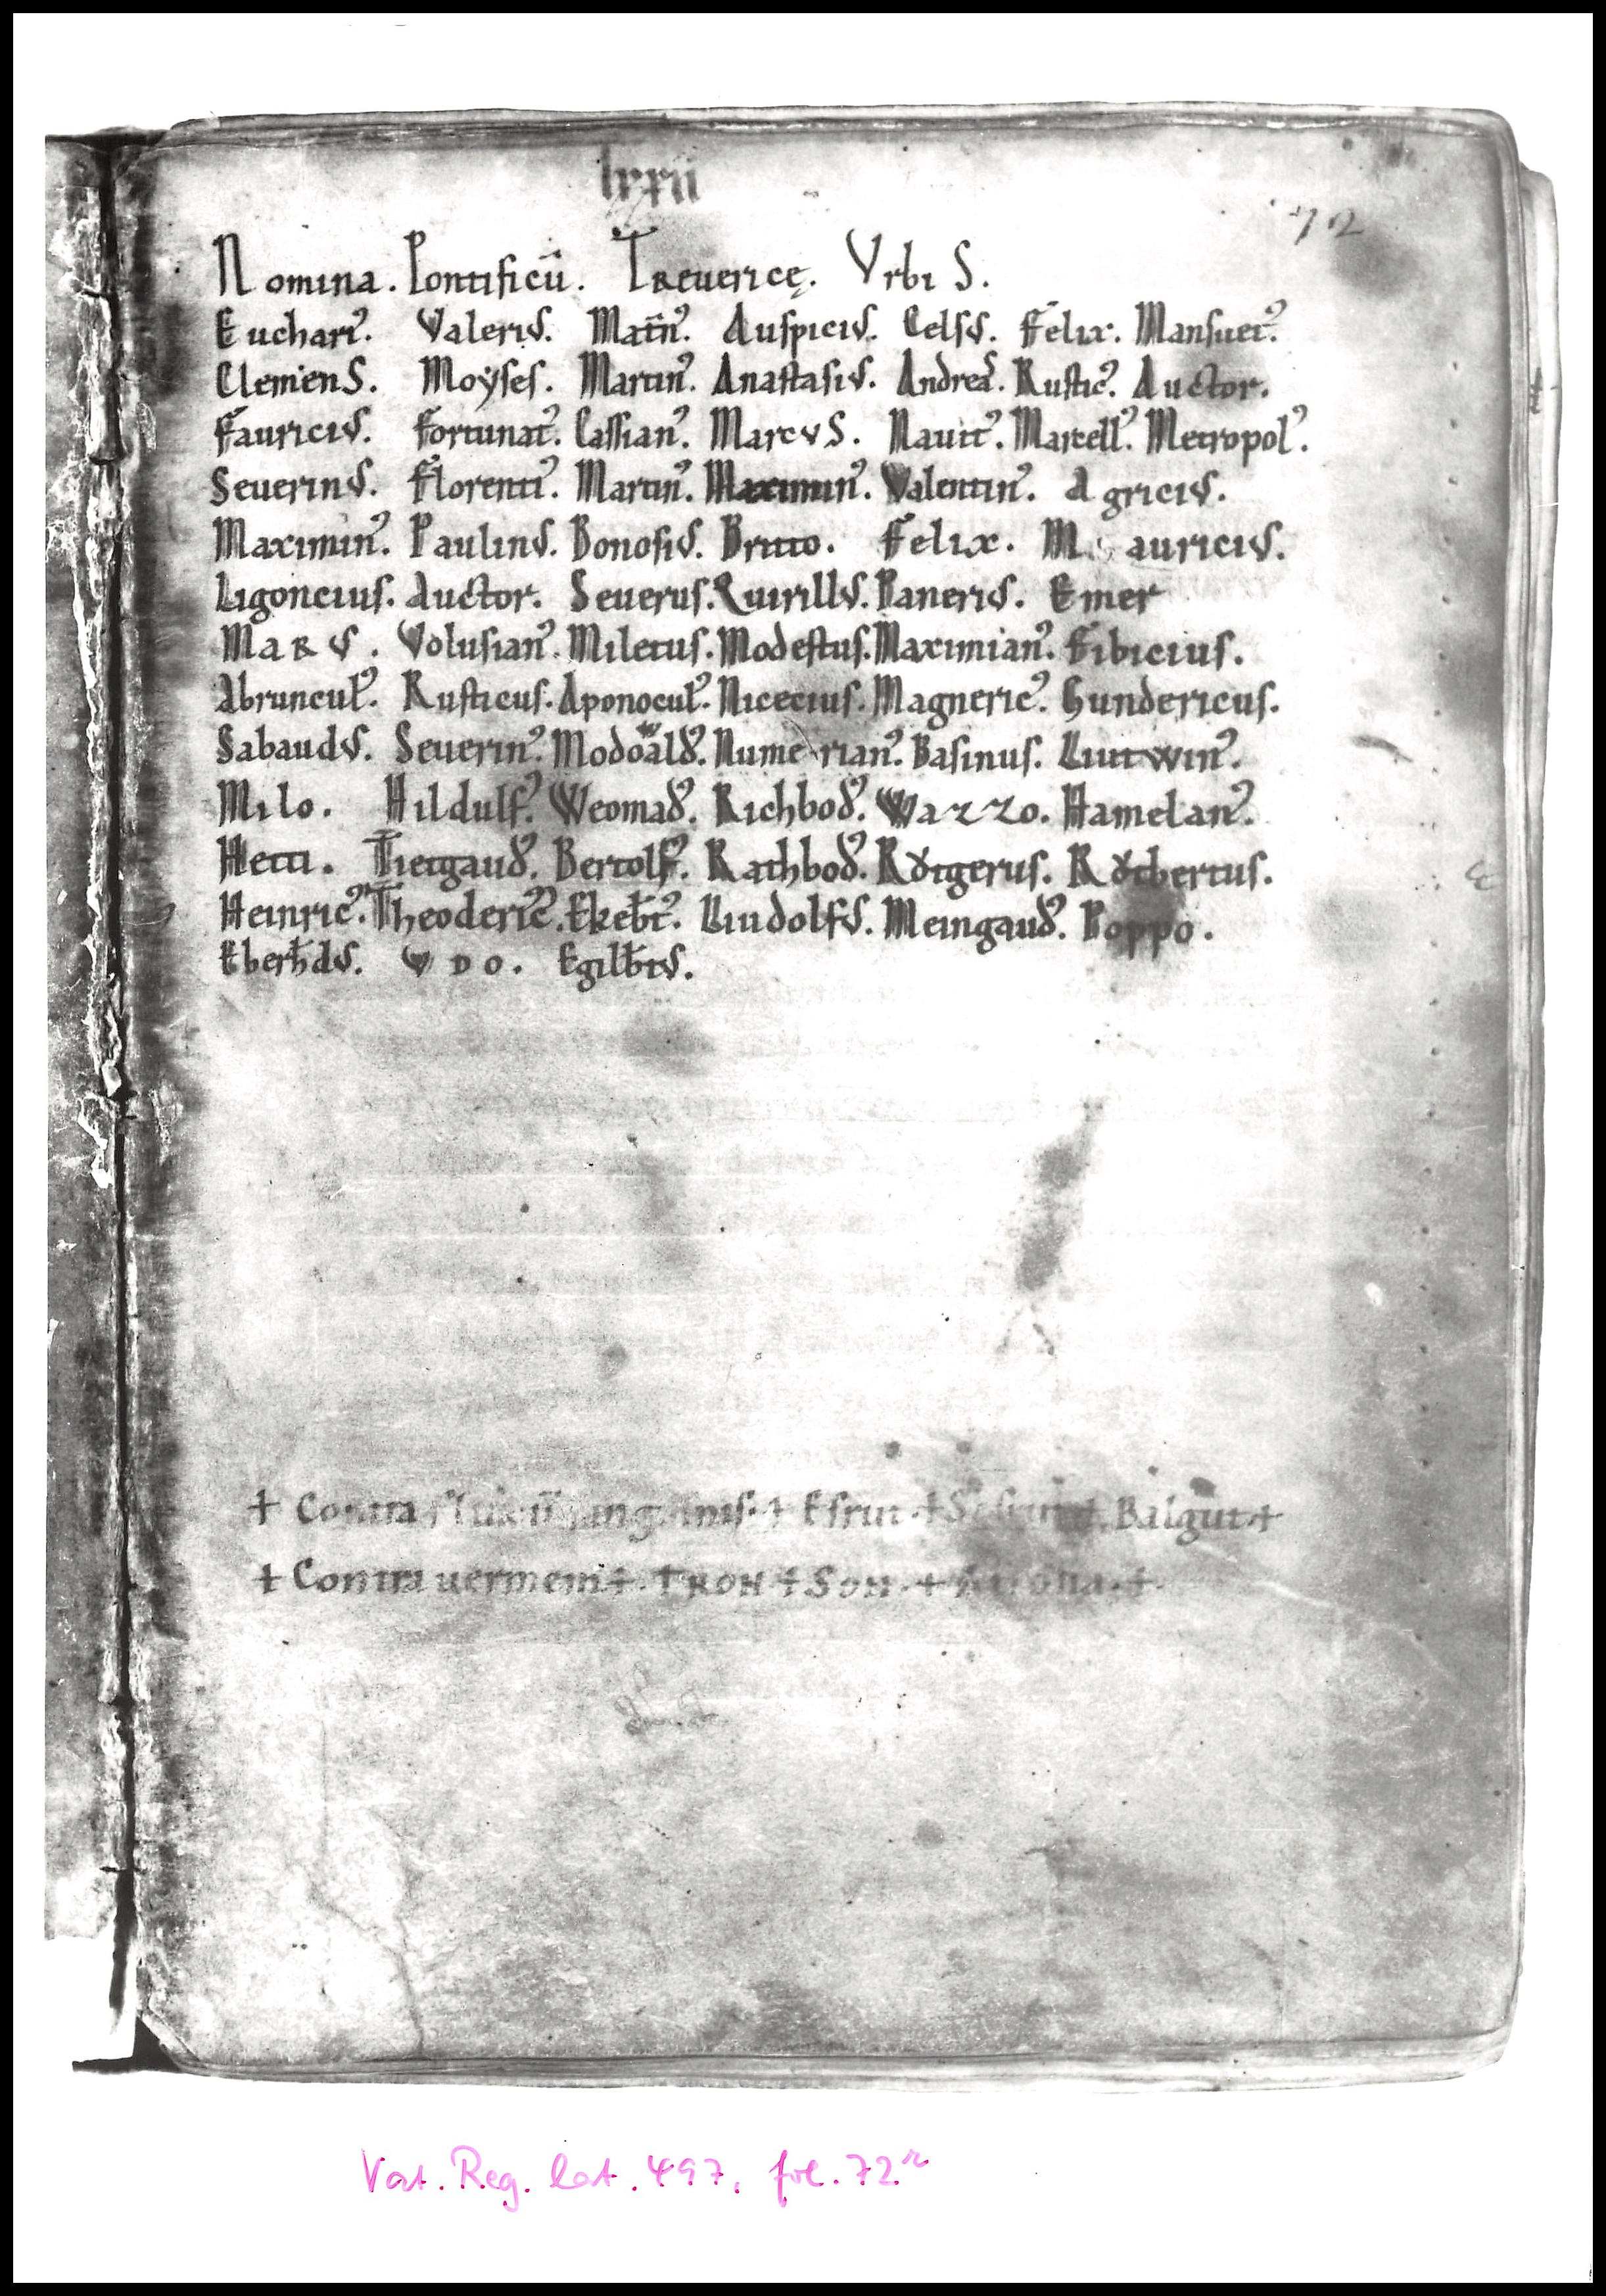 lxxii
72
Nomina. Pontificū. Treuericę. Vrbis.
Euchariꝰ. Valeriꝰ. Mat̄nꝰ. Auspiciꝰ. Celsꝰ. Felix. Mansuetꝰ.
Clemens. Moẏses. Martinꝰ. Anastasiꝰ. Andreas. Rusticꝰ. Auctor.
Fauriciꝰ. Fortunatꝰ. Cassianꝰ. Marcus. Nauitꝰ. Marcellꝰ. Metropolꝰ.
Seuerinꝰ. Florentiꝰ. Martinꝰ. Maximinꝰ. Valentinꝰ. Agriciꝰ.
Maximinꝰ. Paulinꝰ. Bonosiꝰ. Britto. Felix. Mauriciꝰ.
Ligoncius. Auctor. Seuerus. Quirillꝰ. Paneriꝰ. Emer
Marꝰ. Volusianꝰ. Miletus. Modestus. Maximianꝰ. Fibicius.
Abrunculꝰ. Rusticus. Aponoculꝰ. Nicecius. Magnericꝰ. Gundericus.
Sabaudꝰ. Seuerinꝰ. Modowaldꝰ. Numerianꝰ. Basinus. Liutwinꝰ.
Milo. Hildulfꝰ. Weomadꝰ. Richbodꝰ. Wazzo. Hamelanꝰ.
Hetti. Tietgaudꝰ. Bertolfꝰ. Rathbodꝰ. Rǒtgerus. Rǒtbertus.
Heinricꝰ. Theodericꝰ. Ekeb̄tꝰ. Liudolfꝰ. Meingaudꝰ. Poppo.
Eberh̄dꝰ. Vdo. Egilb̄tꝰ.
+ Contra fluxū sanguinis. + Balgut +
+ Contra uermem +. TRON + SON. + +.
Vat. Reg. lat. 497, fol. 72r